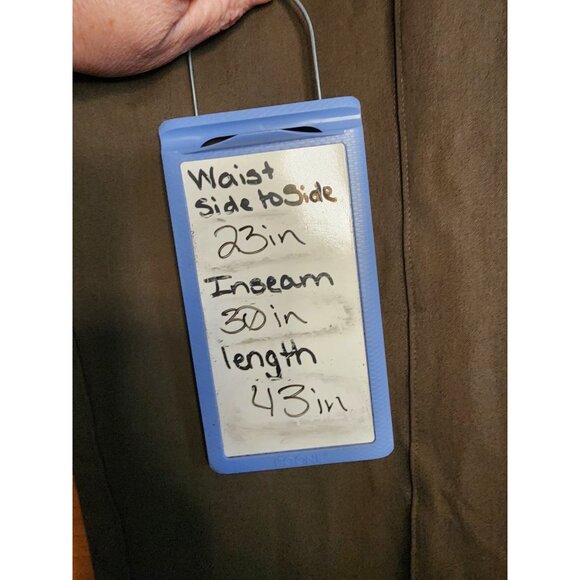 Waist
Side to Side
23in
Inseam
30in
length
43in